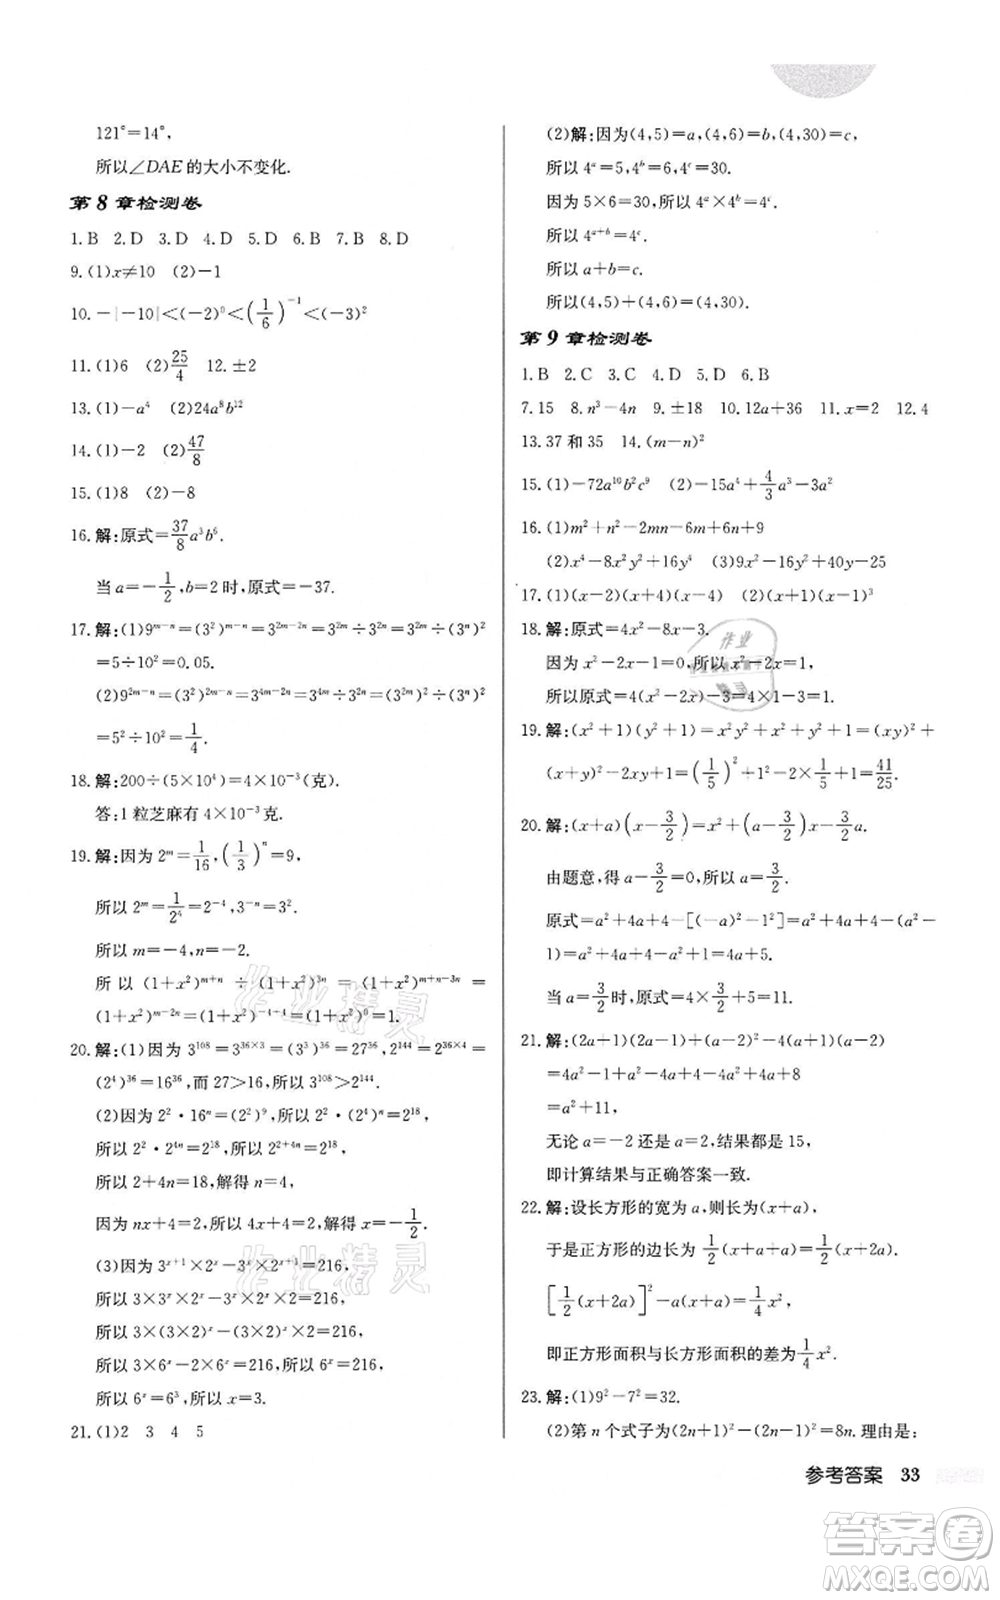 121°=14°,
所以∠DAE的大小不变化.
第8章检测卷
1.B 2.D 3.D 4.D 5.D 6.B 7.B 8.D
9.(1)x≠10 (2)-1
10.-|-10|<(-2)⁰<(1/6)⁻¹<(-3)²
11.(1)6 (2)25/4 12.±2
13.(1)-a⁴ (2)24a⁸b¹²
14.(1)-2 (2)47/8
15.(1)8 (2)-8
16.解:原式=37/8 a³b⁶.
当a=-1/2,b=2时,原式=-37.
17.解:(1)9ᵐ⁻ⁿ=(3²)ᵐ⁻ⁿ=3²ᵐ⁻²ⁿ=3²ᵐ÷3²ⁿ=3²ᵐ÷(3ⁿ)²
=5÷10²=0.05.
(2)9²ᵐ⁻ⁿ=(3²)²ᵐ⁻ⁿ=3⁴ᵐ⁻²ⁿ=3⁴ᵐ÷3²ⁿ=(3²ᵐ)²÷(3ⁿ)²
=5²÷10²=1/4.
18.解:200÷(5×10⁴)=4×10⁻³(克).
答:1粒芝麻有4×10⁻³克.
19.解:因为2ᵐ=1/16,(1/3)ⁿ=9,
所以2ᵐ=1/2⁴=2⁻⁴,3⁻ⁿ=3².
所以m=-4,n=-2.
所以(1+x²)ᵐ⁺ⁿ÷(1+x²)³ⁿ=(1+x²)ᵐ⁺ⁿ⁻³ⁿ=
(1+x²)ᵐ⁻²ⁿ=(1+x²)⁻⁴⁺⁴=(1+x²)⁰=1.
20.解:(1)因为3¹⁰⁸=3³⁶ˣ³=(3³)³⁶=27³⁶,2¹⁴⁴=2³⁶ˣ⁴=
(2⁴)³⁶=16³⁶,而27>16,所以3¹⁰⁸>2¹⁴⁴.
(2)因为2²·16ⁿ=(2²)⁹,所以2²·(2⁴)ⁿ=2¹⁸,
所以2²·2⁴ⁿ=2¹⁸,所以2²⁺⁴ⁿ=2¹⁸,
所以2+4n=18,解得n=4.
因为nx+4=2,所以4x+4=2,解得x=-1/2.
(3)因为3ˣ⁺¹×2ˣ-3ˣ×2ˣ=216,
所以3×3ˣ×2ˣ-3ˣ×2ˣ=216,
所以3×(3×2)ˣ-(3×2)ˣ=216,
所以3×6ˣ-6ˣ=216,所以2×6ˣ=216,
所以6ˣ=6³,所以x=3.
21.(1)2 3 4 5
(2)解:因为(4,5)=a,(4,6)=b,(4,30)=c,
所以4ᵃ=5,4ᵇ=6,4ᶜ=30.
因为5×6=30,所以4ᵃ×4ᵇ=4ᶜ.
所以4ᵃ⁺ᵇ=4ᶜ.
所以a+b=c.
所以(4,5)+(4,6)=(4,30).
第9章检测卷
1.B 2.C 3.C 4.D 5.D 6.B
7.15 8.n³-4n 9.±18 10.12a+36 11.x=2 12.4
13.37和35 14.(m-n)²
15.(1)-72a¹⁰b²c⁹ (2)-15a⁴+4/3a³-3a²
16.(1)m²+n²-2mn-6m+6n+9
(2)x⁴-8x²y²+16y⁴ (3)9x²-16y²+40y-25
17.(1)(x-2)(x+4)(x-4) (2)(x+1)(x-1)³
18.解:原式=4x²-8x-3.
因为x²-2x-1=0,所以x²-2x=1,
所以原式=4(x²-2x)-3=4×1-3=1.
19.解:(x²+1)(y²+1)=x²y²+x²+y²+1=(xy)²+
(x+y)²-2xy+1=(1/5)²+1²-2×1/5+1=41/25.
20.解:(x+a)(x-3/2)=x²+(a-3/2)x-3/2a.
由题意,得a-3/2=0,所以a=3/2.
原式=a²+4a+4-[(-a)²-1²]=a²+4a+4-(a²-
1)=a²+4a+4-a²+1=4a+5.
当a=3/2时,原式=4×3/2+5=11.
21.解:(2a+1)(2a-1)+3(a-2)²-4(a+1)(a-2)
=4a²-1+3a²-12a+12-4a²+4a+8
=a²+11,
无论a=-2还是a=2,结果都是15,
即计算结果与正确答案一致.
22.解:设长方形的宽为a,则长为(x+a),
于是正方形的边长为1/2(x+a+a)=1/2(x+2a).
[1/2(x+2a)]²-a(x+a)=1/4x²,
即正方形面积与长方形面积的差为1/4x².
23.解:(1)9²-7²=32.
(2)第n个式子为(2n+1)²-(2n-1)²=8n.理由是:
参考答案 33
作业精灵
作业精灵
答案卷
MXQE.COM